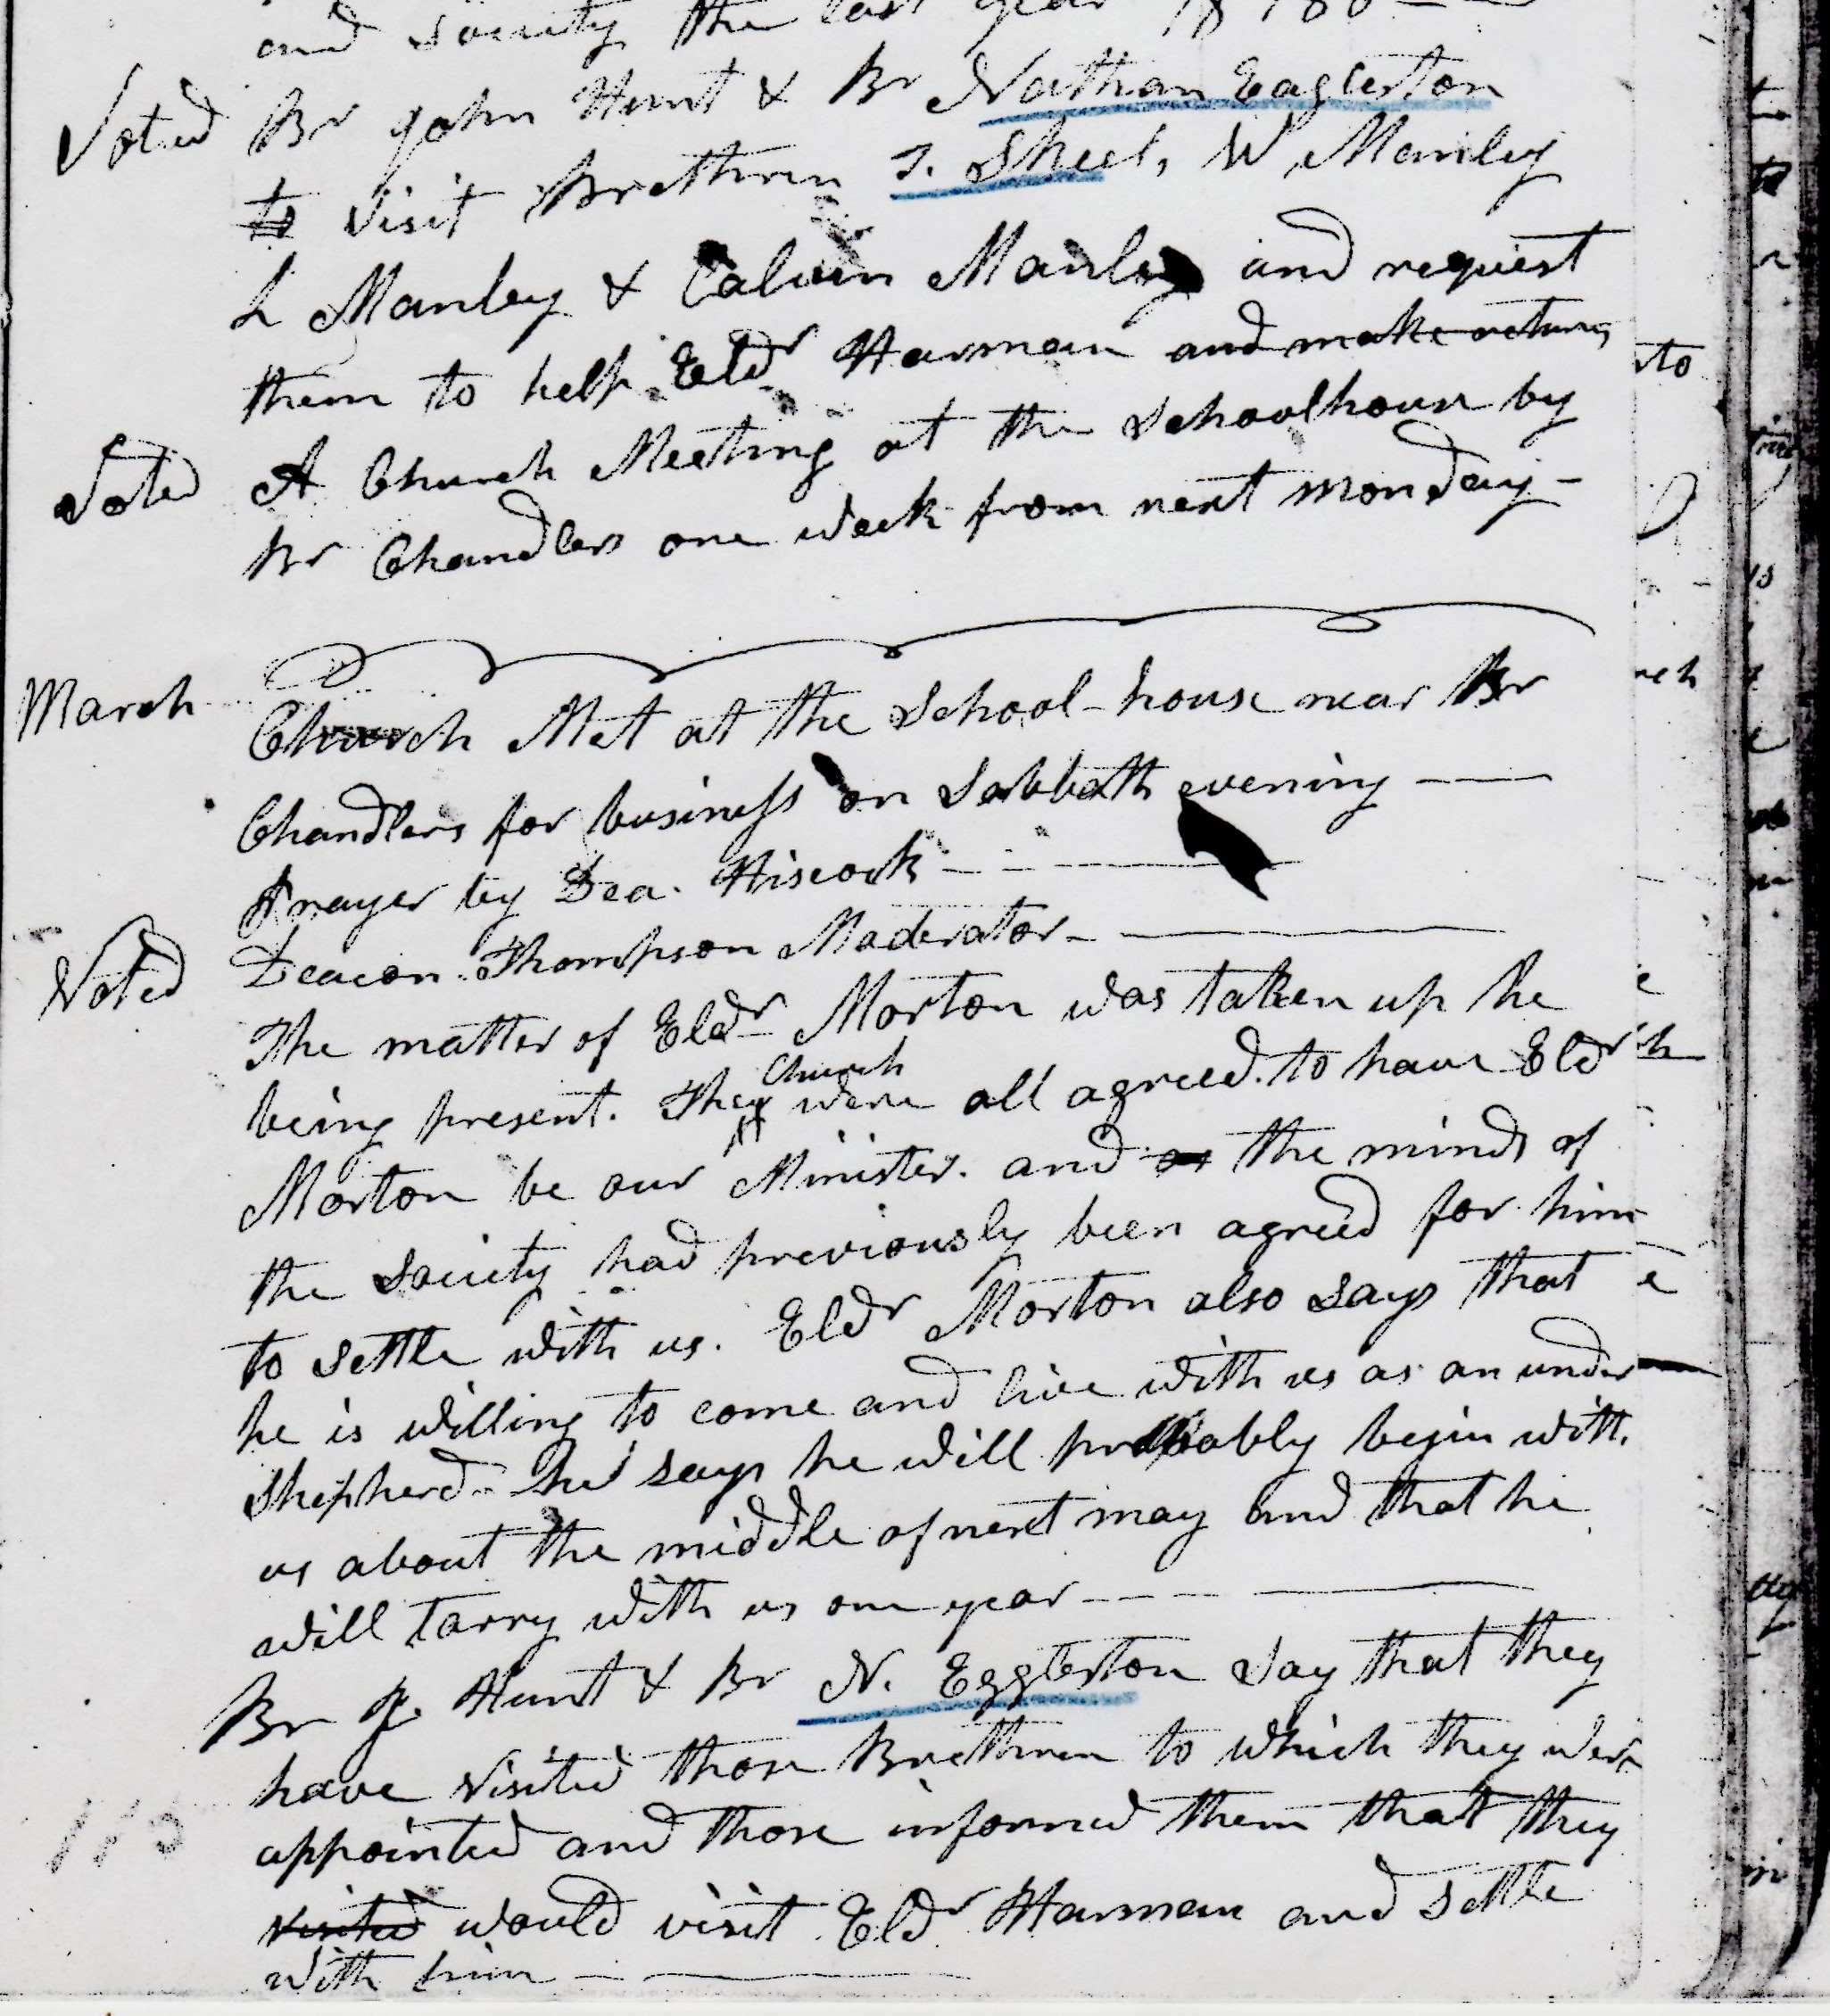 and Society the last year
Voted Br John Hunt & Br Nathan Eagleston
to visit Brethren S. Sheel, W Manley
L Manley & Calvin Manley and request
them to help Eldr Harman and make return
Voted A Church Meeting at the Schoolhouse by
Br Chandlers one week from next Monday -
March Church Met at the School-house near Br
Chandlers for business on Sabbath evening —
Prayer by Dea. Hiscock - - —
Voted Deacon Thompson Moderator - —
The matter of Eldr Morton was taken up he
being present. They Church were all agreed to have Eldr
Morton be our Minister. and as the minds of
the Society had previously been agreed for him
to settle with us. Eldr Morton also says that
he is willing to come and live with us as an under
Shepherd - he says he will probably begin with
us about the middle of next may and that he
will tarry with us one year - - —
Br J. Hunt & Br N. Eggleston say that they
have visited those Brethren to which they were
appointed and those informed them that they
visited would visit Eldr Harman and settle
with him - —
113